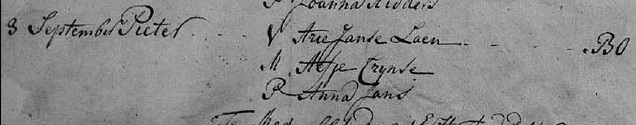 P Joanna Ridders
3 September Pieter V Arie Janse Laen BO
M Aefje Crynse
P Anna Jans